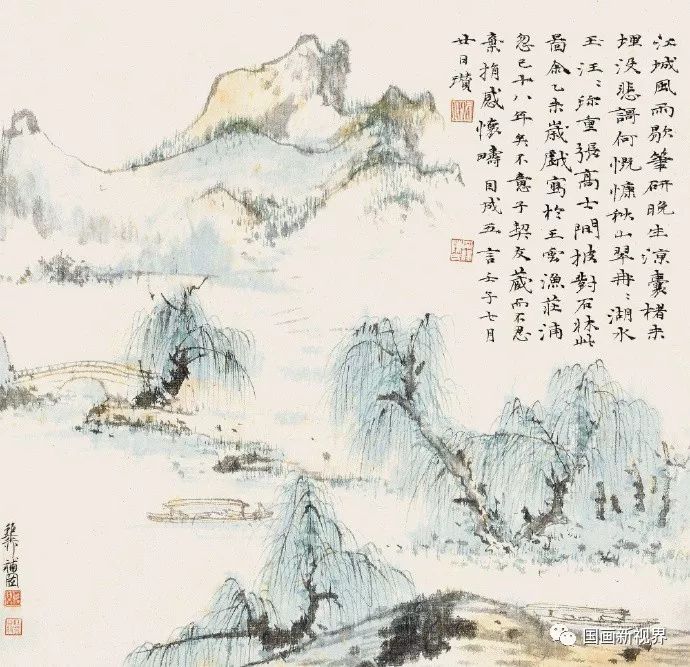 江城風雨歇筆研晚生涼囊楮未
埋没悲謌何慨慷秋山翠冉〻湖水
玉汪〻珍重張高士閒披對石牀此
啚余乙未歲戲寫於王雲漁莊浦
忽已十八年矣不意子契友藏而不忍
棄捐感懷疇因成五言壬子七月
廿日瓚
稚柳補圖
国画新视界